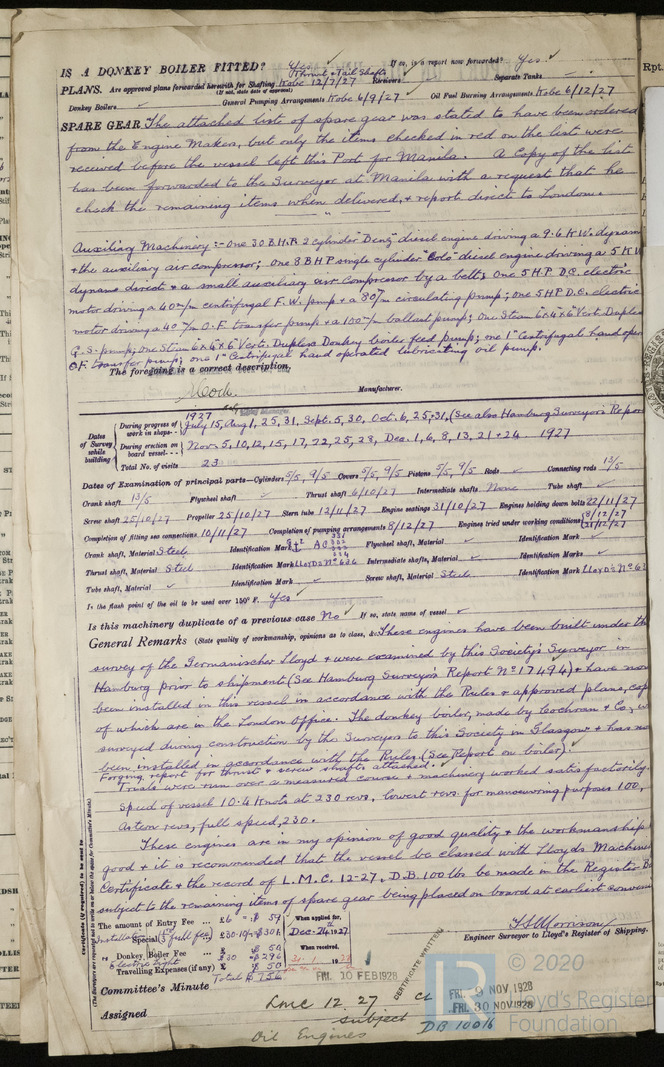 IS A DONKEY BOILER FITTED? Yes. ✓ If so, is a report now forwarded? Yes. ✓
Thrust & Tail Shafts
PLANS. Are approved plans forwarded herewith for Shafting Kobe 12/7/27 Receivers Separate Tanks
(If not, state date of approval)
Donkey Boilers ✓ General Pumping Arrangements Kobe 6/9/27 Oil Fuel Burning Arrangements Kobe 6/12/27
SPARE GEAR The attached lists of spare gear was stated to have been ordered
from the Engine Makers, but only the items checked in red on the list were
received before the vessel left this Port for Manila. A Copy of the list
has been forwarded to the Surveyor at Manila with a request that he
check the remaining items when delivered, & report direct to London.
Auxiliary Machinery :- One 30 B.H.P. 2 cylinder "Benz" diesel engine driving a 9.6 K.W. dynamo
& the auxiliary air compressor; one 8 BHP single cylinder diesel engine driving a 5 K W
dynamo direct & a small auxiliary air compressor by a belt; One 5 H.P. D.C. electric
motor driving a 40 m/m centrifugal F.W. pump & a 80 m/m circulating pump; one 5 H.P D.C. electric
motor driving a 40 m/m O.F. transfer pump & a 100 m/m ballast pump; One Steam 6x4x6 Vert. Duplex
G.S. pump; one Steam 6x4x6 Vert. Duplex Donkey boiler feed pump; one 1" Centrifugal hand oper
O.F. transfer pump; one 1" Centrifugal hand operated lubricating oil pump.
The foregoing is a correct description,
Manufacturer.
1927
Dates of Survey while building
During progress of work in shops - - July 15, Aug 1, 25, 31, Sept. 5, 30, Oct. 6, 25, 31, (See also Hamburg Surveyor's Repor
During erection on board vessel - - - Nov. 5, 10, 12, 15, 17, 22, 25, 28, Dec. 1, 6, 8, 13, 21 & 24 1927
Total No. of visits 23
Dates of Examination of principal parts—Cylinders 5/5, 9/5 Covers 5/5, 9/5 Pistons 5/5, 9/5 Rods ✓ Connecting rods 13/5
Crank shaft 13/5 Flywheel shaft ✓ Thrust shaft 6/10/27 Intermediate shafts None Tube shaft ✓
Screw shaft 25/10/27 Propeller 25/10/27 Stern tube 12/11/27 Engine seatings 31/10/27 Engines holding down bolts 22/11/27
Completion of fitting sea connections 10/11/27 Completion of pumping arrangements 8/12/27 Engines tried under working conditions 8/12/27 21/12/27
Crank shaft, Material Steel Identification Mark Flywheel shaft, Material ✓ Identification Mark ✓
Thrust shaft, Material Steel Identification Mark LLOYD'S No 626 Intermediate shafts, Material ✓ Identification Marks ✓
Tube shaft, Material ✓ Identification Mark ✓ Screw shaft, Material Steel Identification Mark LLOYD'S No 62
Is the flash point of the oil to be used over 150° F. Yes ✓
Is this machinery duplicate of a previous case No ✓ If so, state name of vessel ✓
General Remarks (State quality of workmanship, opinions as to class, &c. These engines have been built under th
survey of the Germanischer Lloyd & were examined by this Society's Surveyor in
Hamburg prior to shipment (See Hamburg Surveyor's Report No 17494) & have now
been installed in this vessel in accordance with the Rules & approved plans, cop
of which are in the London Office. The donkey boiler, made by Cochran & Co., w
surveyed during construction by the Surveyors to this Society in Glasgow & has no
been installed in accordance with the Rules (See Report on boiler).
Forging report for thrust & screw shafts attached.
Trials were run over a measured course & machinery worked satisfactorily.
Speed of vessel 10.4 Knots at 230 revs, lowest revs. for manoeuvring purposes 100,
Astern revs, full speed, 230.
These engines are in my opinion of good quality & the workmanship
good & it is recommended that the vessel be classed with Lloyds Machine
Certificate & the record of L.M.C. 12-27. D.B. 100 lbs be made in the Register B
subject to the remaining items of spare gear being placed on board at earliest conven
Certificate (if required) to be sent to
(The Surveyors are requested not to write on or below the space for Committee's Minute.)
The amount of Entry Fee ... £6 = $ 59
Special £30.10/= $301
Donkey Boiler Fee ...
Electric Light £30 $296
Travelling Expenses (if any) £ $50
Total $756
When applied for,
Dec. 24th 1927
When received,
FRI. 10 FEB 1928
Engineer Surveyor to Lloyd's Register of Shipping.
CERTIFICATE WRITTEN
Committee's Minute
FRI. 9 NOV. 1928
FRI. 30 NOV 1928
Assigned LMC 12 27 CL
subject
DB 100 lb
Oil Engines
LR
© 2020
Lloyd's Register
Foundation
Rpt.